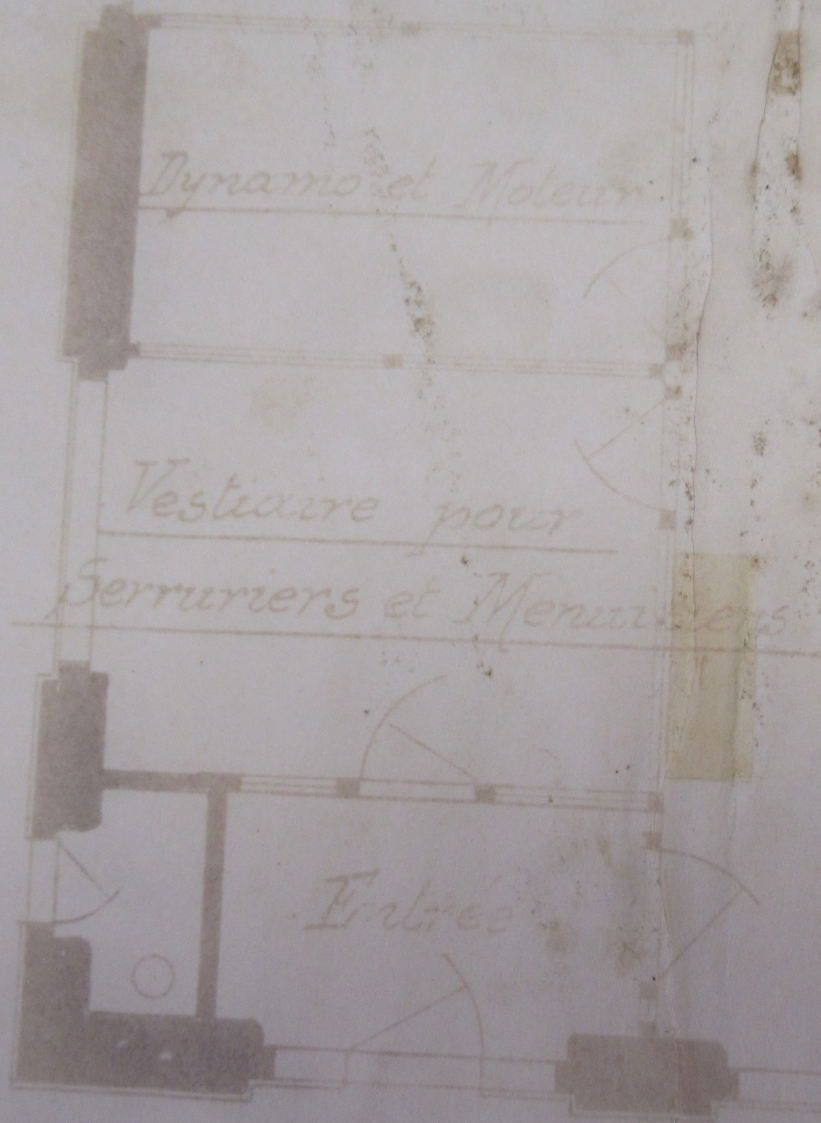 Dynamo et Moteur
Vestiaire pour
Serruriers et Menuisiers
Entrée